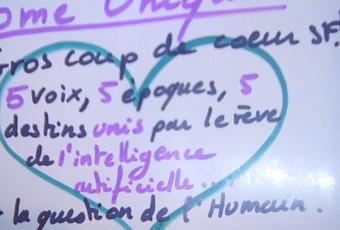 ome Uniq
Gros coup de coeur SF!
5 voix, 5 époques, 5
destins unis par le rêve
de l'intelligence
artificielle...
la question de l'Humain.